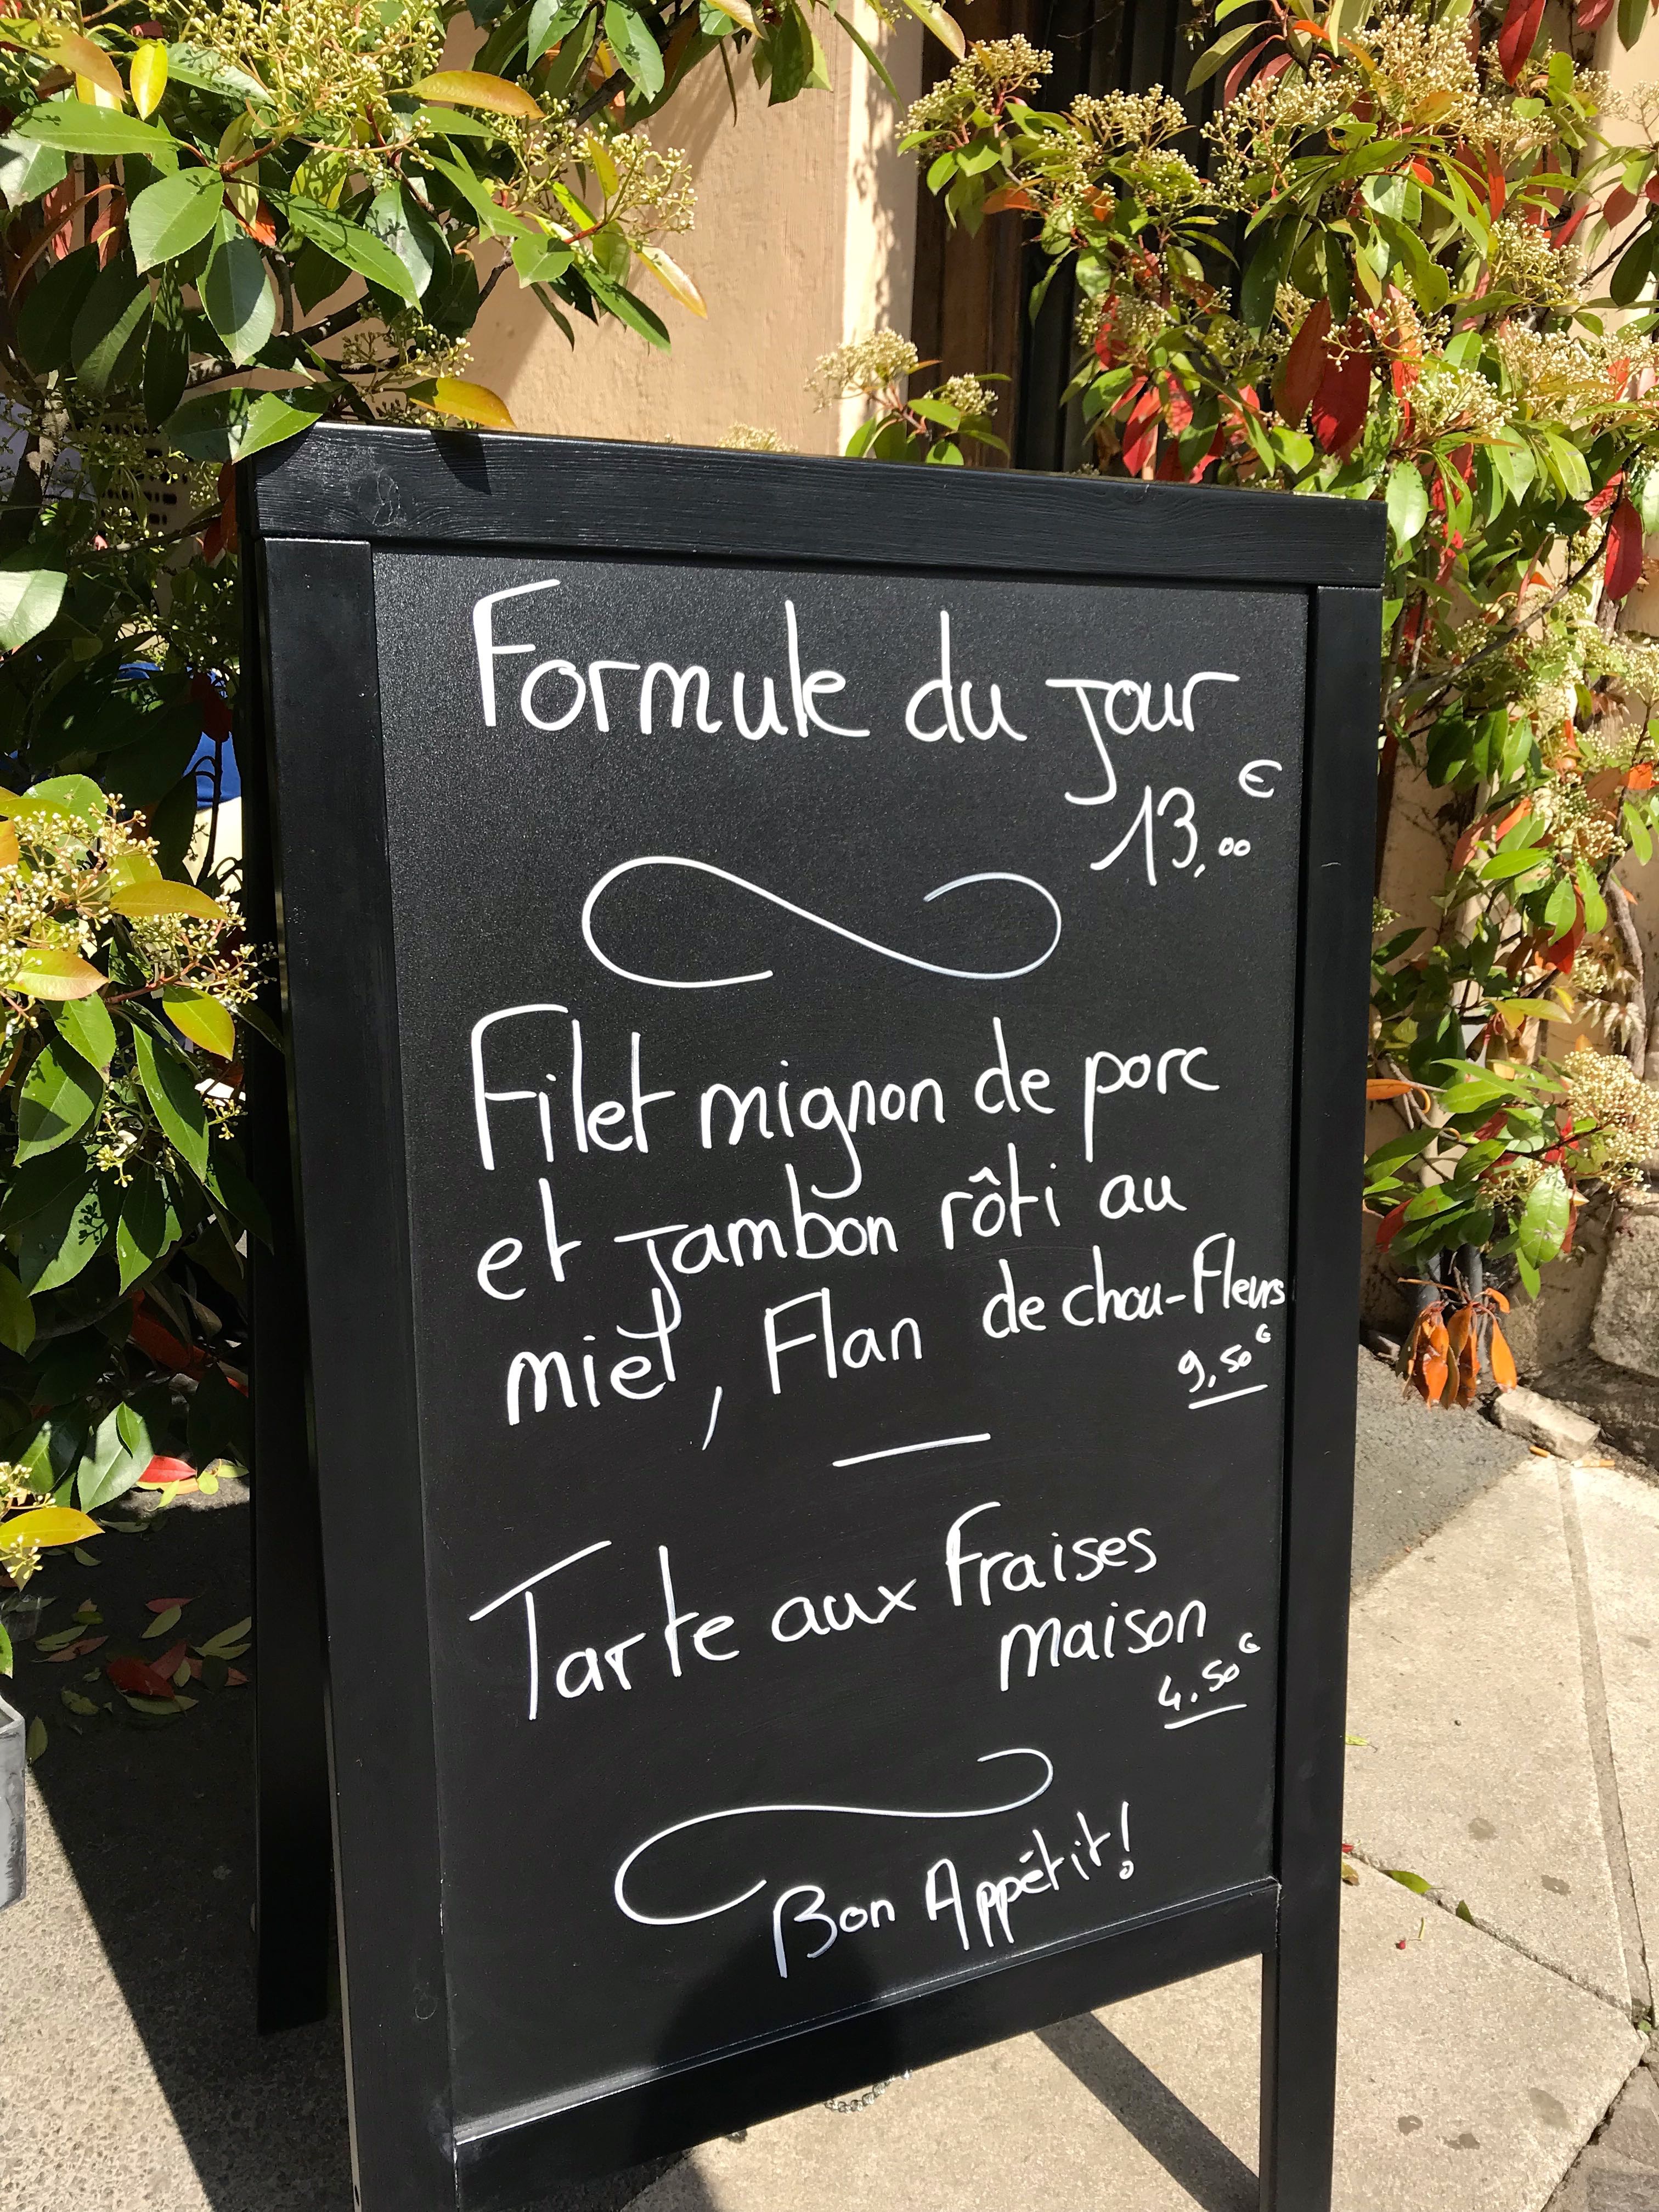 Formule du jour
13,00€
Filet mignon de porc
et jambon rôti au
miel, Flan de chou-Fleurs
9,50€
Tarte aux Fraises
maison
4.50€
Bon Appétit!